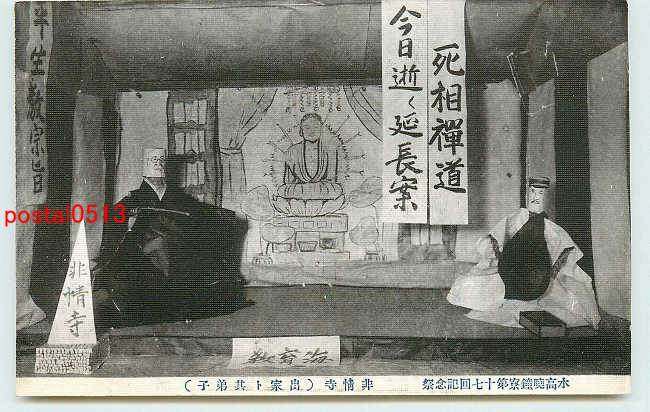 半生教宗旨
死相禪道
今日逝く延長案
postal0513
非情寺
水高曉鐘寮第十七回記念祭
非情寺(出家ト其弟子)